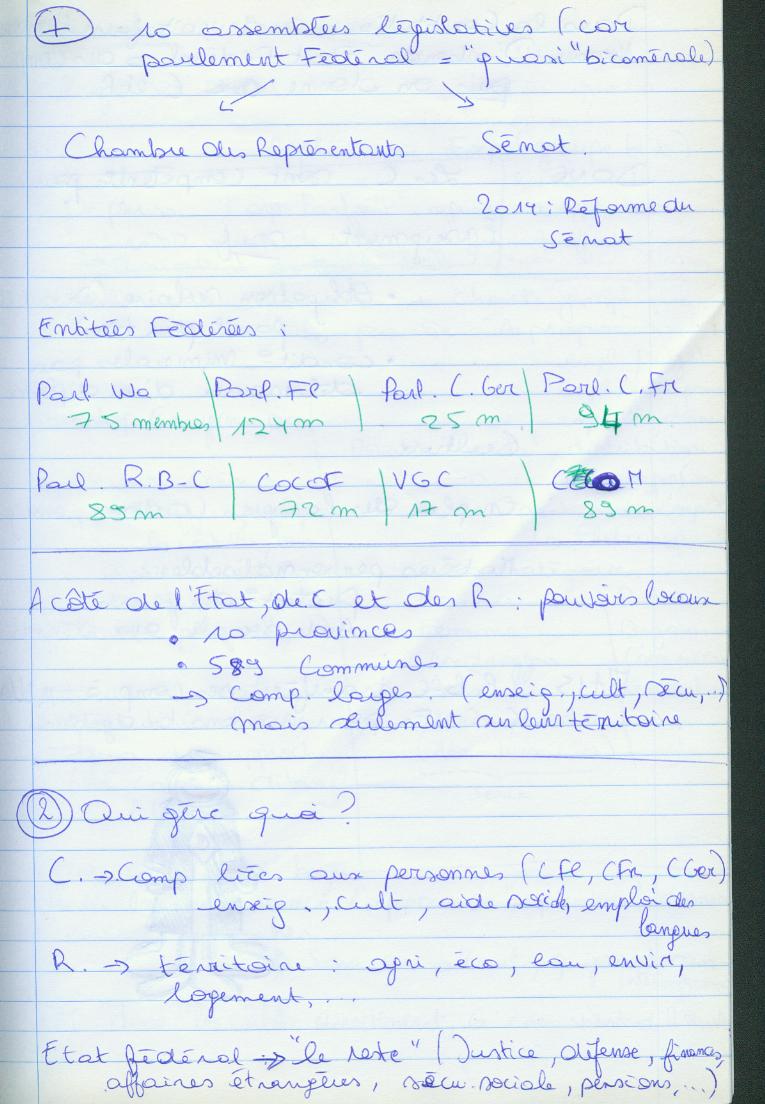 + 10 assemblées législatives (car
parlement Fédéral = "quasi" bicamérale)
Chambre des Représentants Sénat.
2014 : Réforme du
Sénat
Entitées Fédérées :
Parl Wa | Parl. Fl | Parl. C. Ger | Parl. C. Fr
75 membres | 124 m | 25 m | 94 m
Parl. R.B-C | COCOF | VGC |
89 m | 72 m | 17 m | 89 m
A côté de l'Etat, de C et des R : pouvoirs locaux
• 10 provinces
• 589 Communes
→ Comp. larges. (enseig., cult, sécu,..)
mais seulement sur leur térritoire
② Qui gère quoi ?
C. → Comp liées aux personnes (CFl, CFr, CGer)
enseig., cult, aide sociale, emploi des
langues
R. → térritoire : agri, éco, eau, envir,
logement, ...
Etat fédéral → "le reste" (Justice, défense, finances,
affaires étrangères, sécu. sociale, pensions, ...)